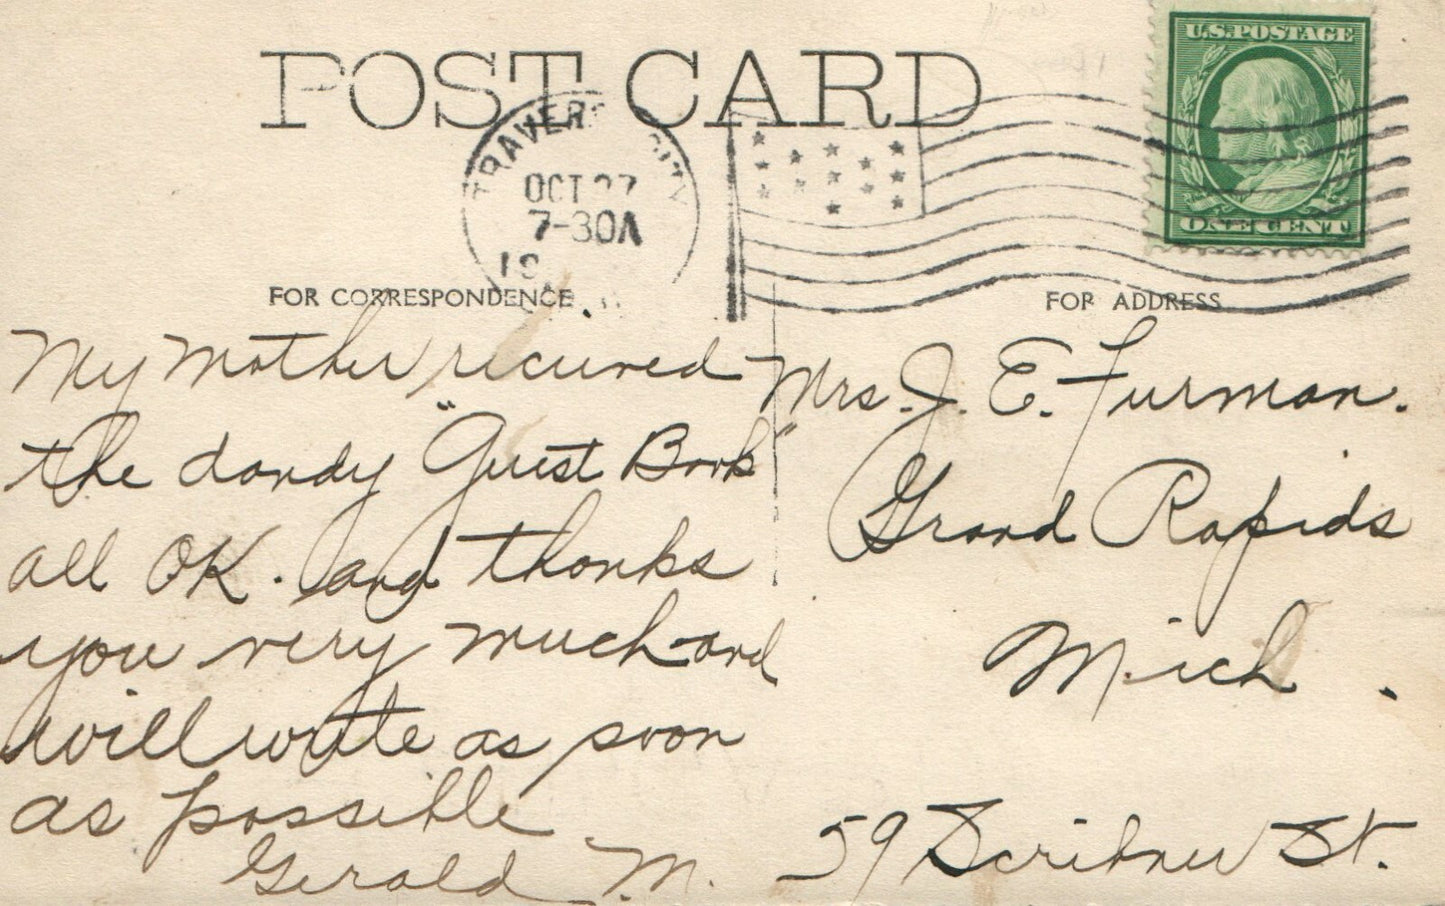 POST CARD
U.S. POSTAGE
ONE CENT
TRAVERSE CITY
OCT 27
7-30A
19
FOR CORRESPONDENCE
FOR ADDRESS
My Mother recieved
the dandy "Guest Book"
all OK. and thanks
you very much and
will write as soon
as possible
Gerald M.
Mrs. J. E. Furman.
Grand Rapids
Mich.
59 Scribner St.